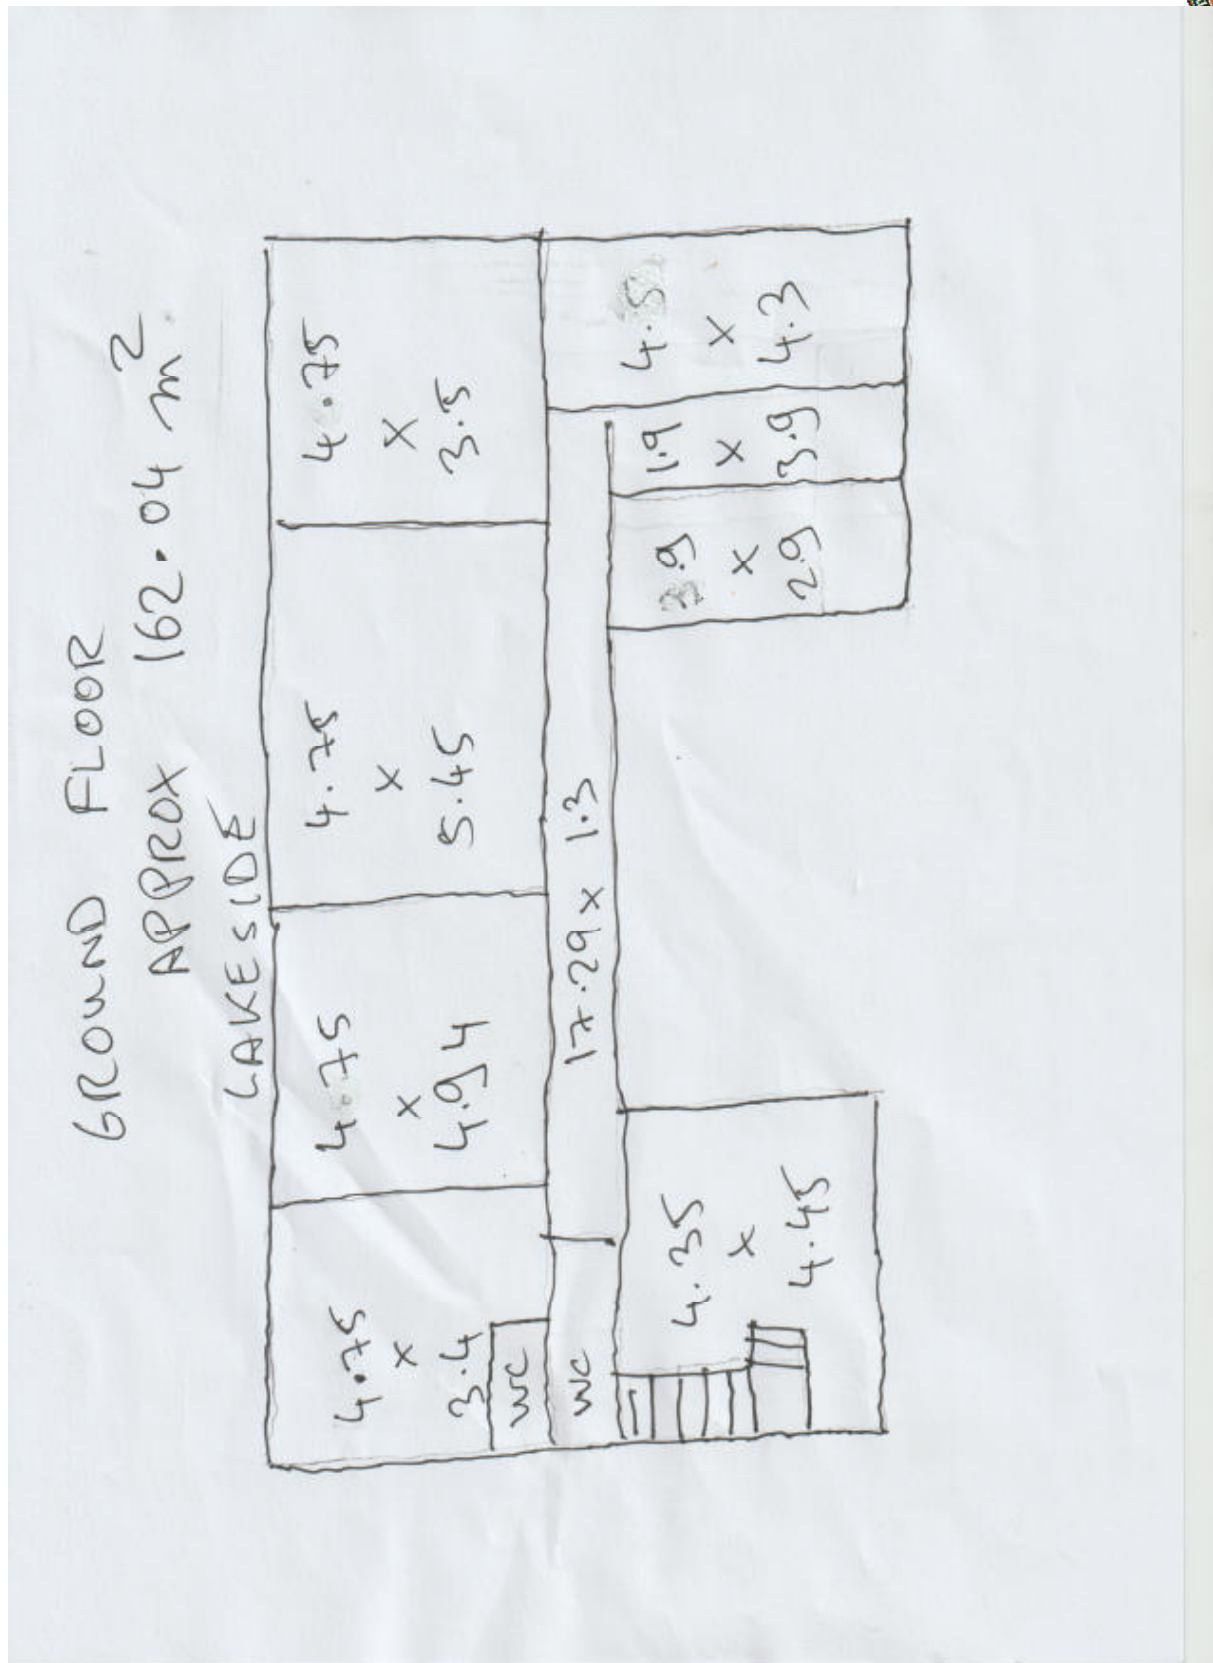 GROUND FLOOR
APPROX 162.04 m²
LAKESIDE
4.75
x
3.4
4.75
x
4.94
4.75
x
5.45
4.75
x
3.5
WC
WC
17.29 x 1.3
4.35
x
4.45
3.9
x
2.9
1.9
x
3.9
x
4.3